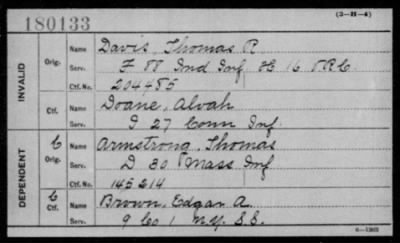 180133 (3-H-4)
INVALID Orig. Name Davis, Thomas P.
Serv. F 88 Ind Inf. H 16 V.R.C.
Ctf. No. 204485
Ctf. Name Doane, Alvah
Serv. I 27 Conn Inf.
DEPENDENT C Orig. Name Armstrong, Thomas
Serv. D 30 Mass Inf
Ctf. No. 145214
C Ctf. Name Brown, Edgar A.
Serv. 9 Co 1 N.Y. S.S.